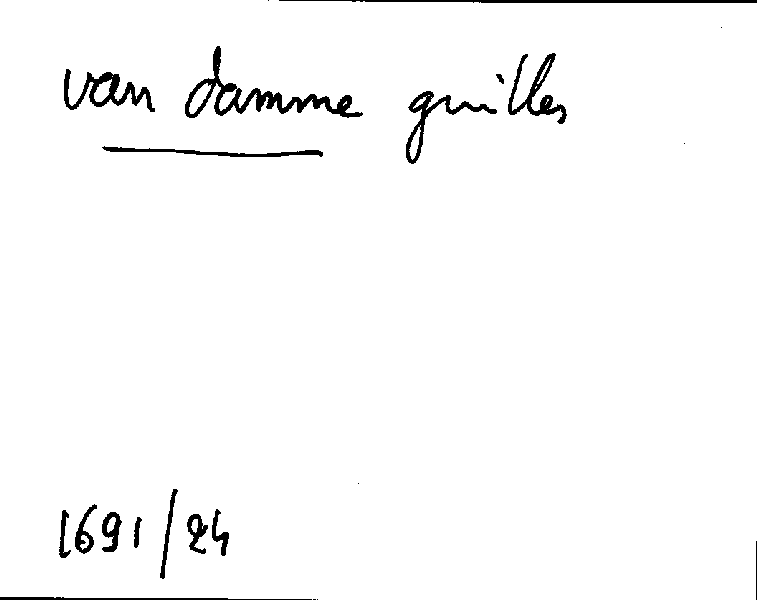 van damme guilles
1691/24